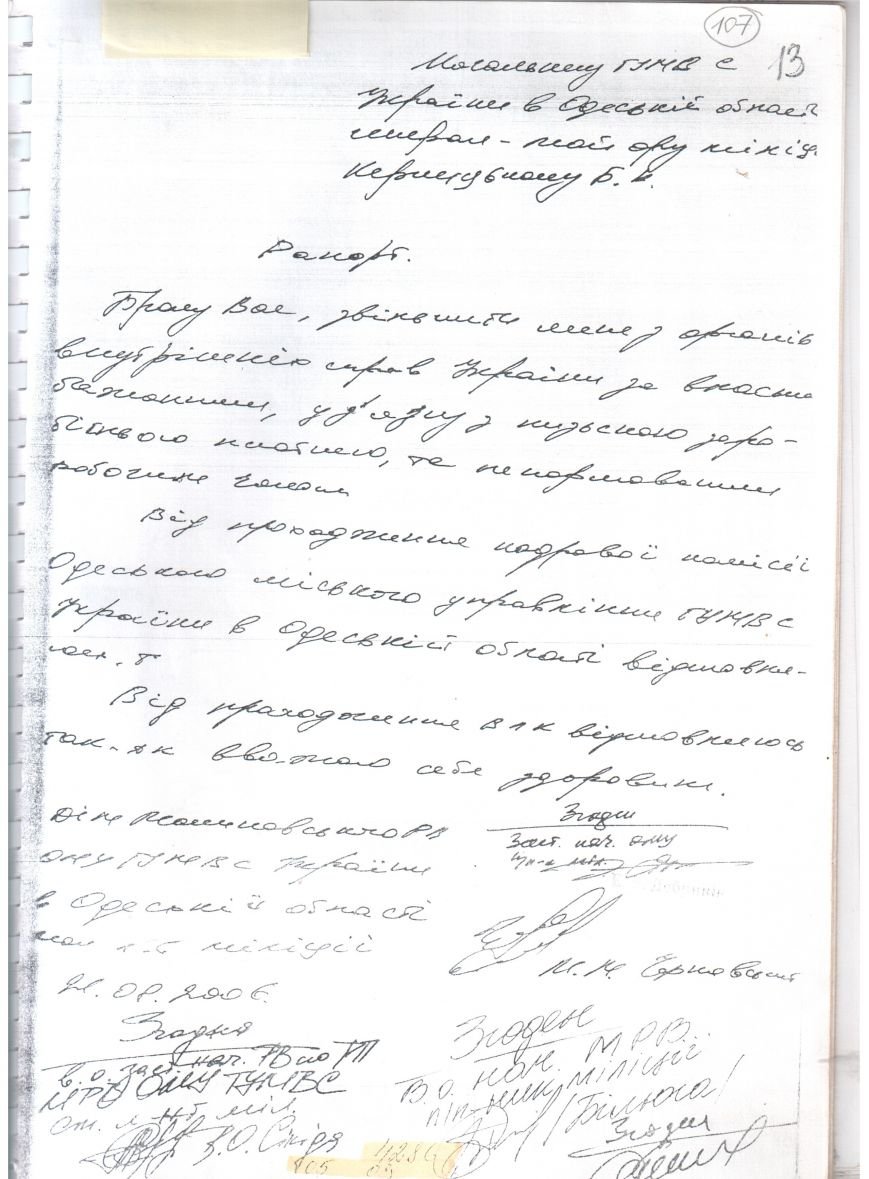 107
13
Начальнику ГУМВС
України в Одеській області
генерал-майору міліції
Б.
Рапорт.
Прошу Вас, звільнити мене з органів
внутрішніх справ України за власним
бажанням, у зв'язку з низькою заро-
бітньою платнею, та ненормованим
робочим часом
Від проходження кадрової комісії
Одеського міського управління ГУМВС
України в Одеській області відмовля-
юсь.
Від проходження ВЛК відмовляюсь
так-як вважаю себе здоровим.
ДІМ Малиновського РВ
ОМУ ГУМВС України
в Одеській області
міліції
Згоден
Заст. нач. ОМУ
М. М.
21.08.2006
Згоден
В.о. заст. нач. РВ по
МРВ ОМУ ГУМВС
ст. л-нт міл.
В.О.
Згоден
В.о. нач. МРВ
підполковник міліції
/Білюга/
Згоден